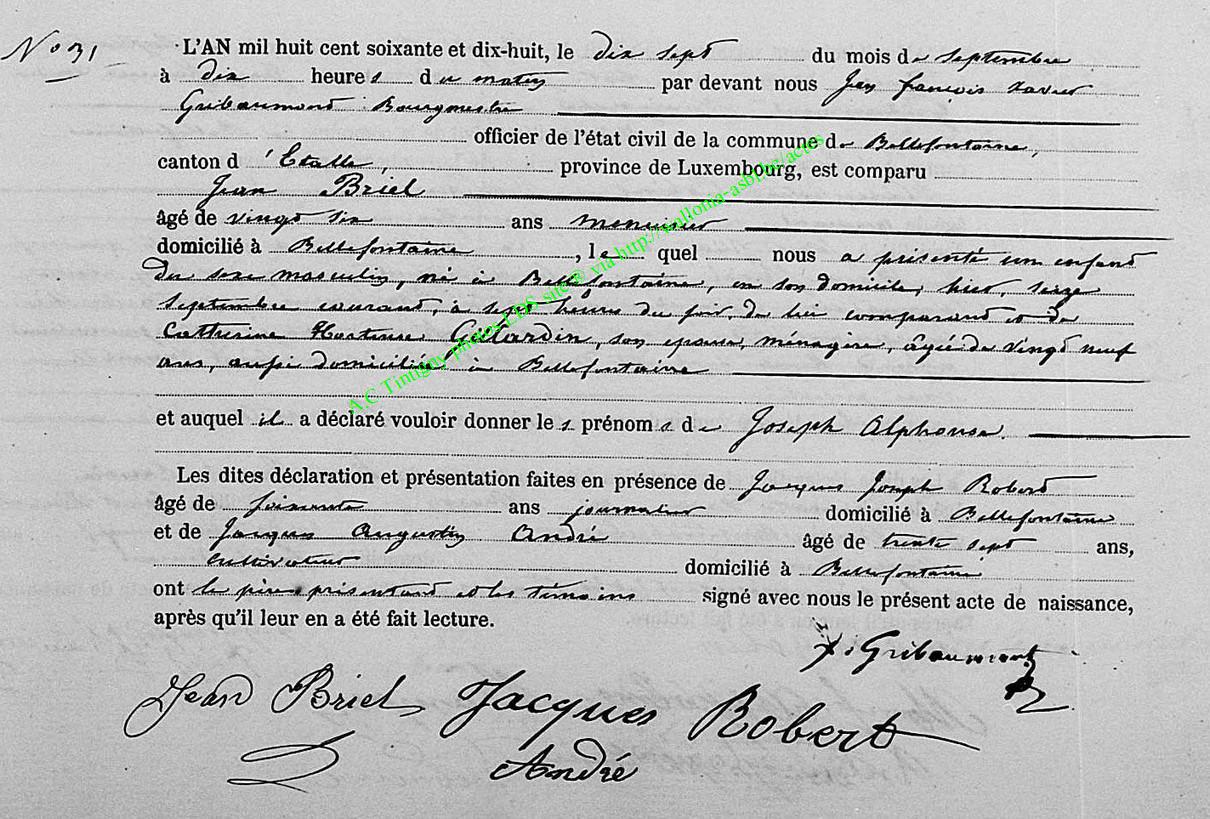 N° 31
L'AN mil huit cent soixante et dix-huit, le dix sept du mois de septembre
à dix heures du matin par devant nous Jean françois Xavier
Gribaumont Bourgmestre
officier de l'état civil de la commune de Bellefontaine,
canton d'Etalle, province de Luxembourg, est comparu
Jean Briel
âgé de vingt six ans menuisier
domicilié à Bellefontaine, le quel nous a présenté un enfant
du sexe masculin, né à Bellefontaine, en son domicile, hier, seize
septembre courant, à sept heures du soir, de lui comparant et de
Catherine Hortense Gillardin, son épouse, ménagère, âgée de vingt neuf
ans, aussi domiciliée à Bellefontaine
et auquel il a déclaré vouloir donner les prénoms de Joseph Alphonse.
Les dites déclaration et présentation faites en présence de Jacques Joseph Robert
âgé de soixante ans journalier domicilié à Bellefontaine
et de Jacques Augustin André âgé de trente sept ans,
cultivateur domicilié à Bellefontaine
ont le père présentant et les témoins signé avec nous le présent acte de naissance,
après qu'il leur en a été fait lecture.
Gribaumont
Jean Briel Jacques Robert
André
A.C Tintigny photos EDS site @ via http://wallonia-asbl.be/actes